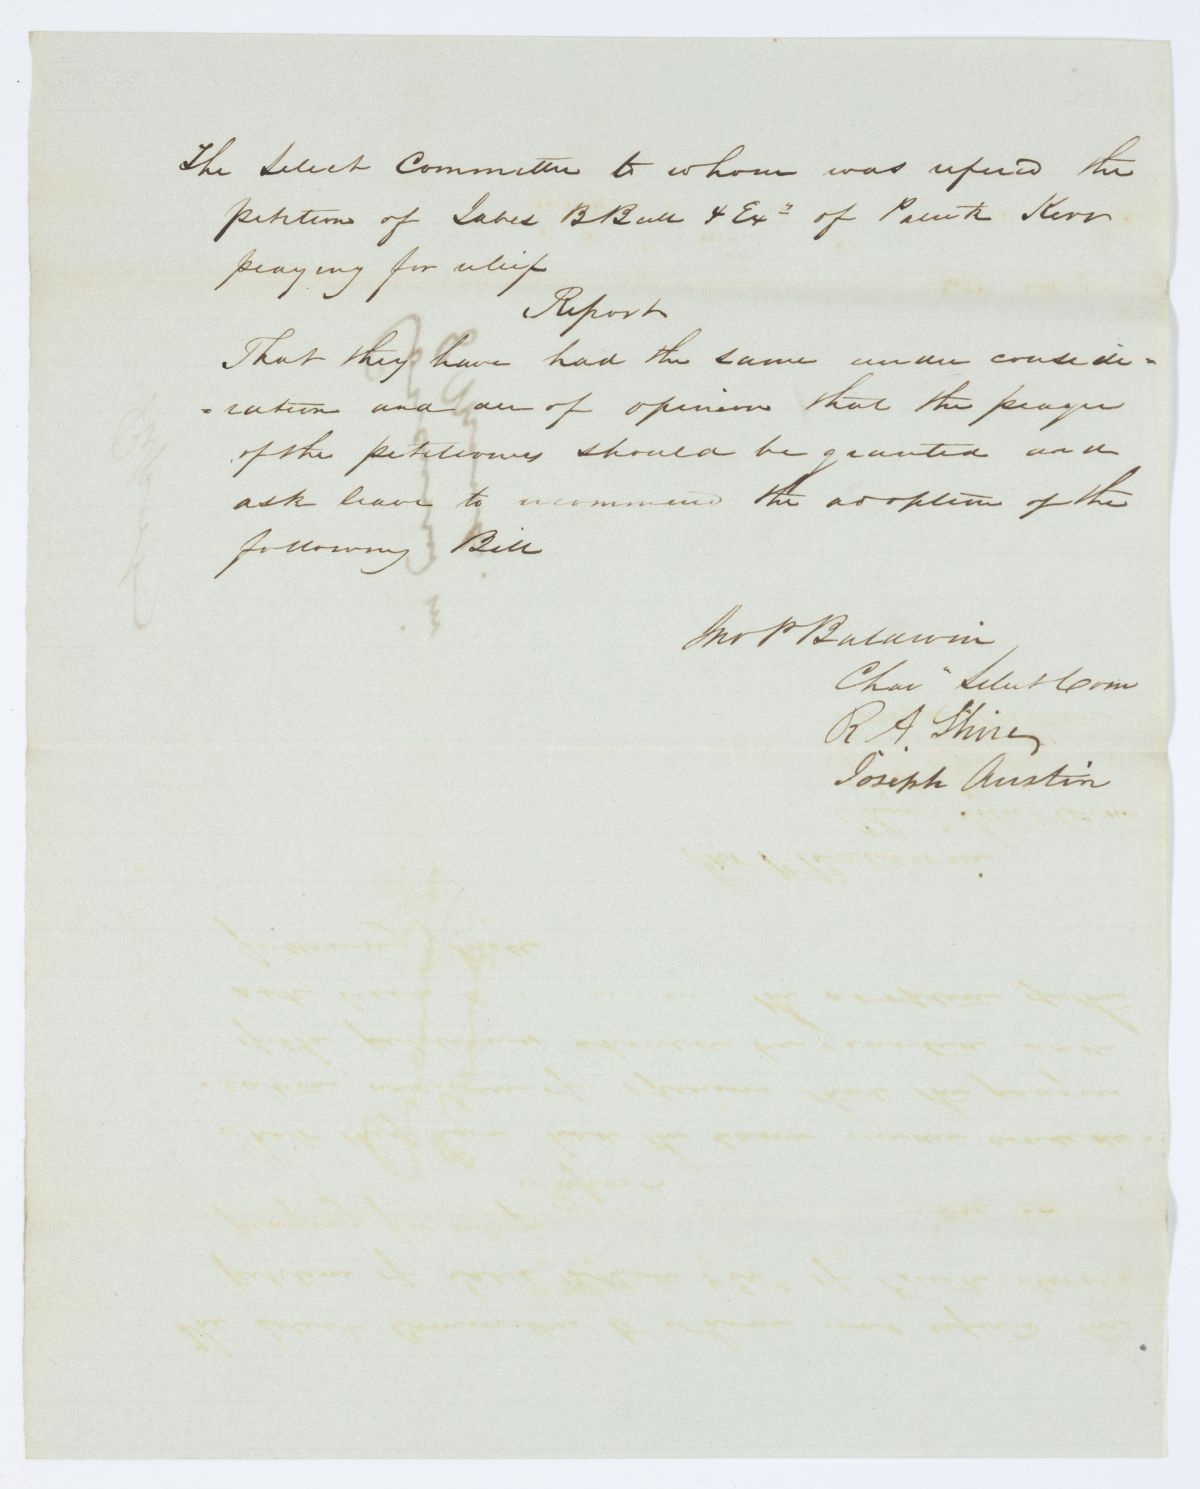 The Select Committee to whom was refer'd the
petition of Jabes B Bull & Exr of Kerr
praying for relief
Report
That they have had the same under conside=
=ration and are of opinion that the prayer
of the petitioners should be granted and
ask leave to recommend the adoption of the
following Bill
Jno P Baldwin
Char" Select Com
R. A. Shine
Joseph Austin